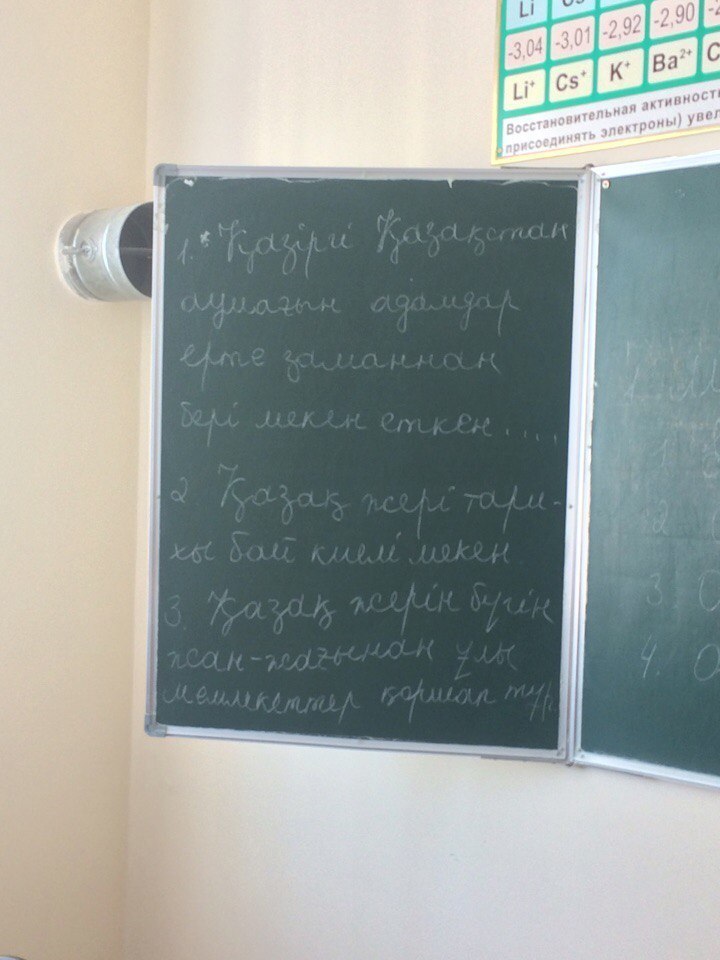 Li Cs
-3,04 -3,01 -2,92 -2,90
Li⁺ Cs⁺ K⁺ Ba²⁺ C
Восстановительная активность
присоединять электроны) увел
1. Қазіргі Қазақстан
аумағын адамдар
ерте заманнан
бері мекен еткен....
2 Қазақ жері тари-
хы бай киелі мекен
3. Қазақ жерін бүгін
жан-жағынан ұлы
мемлекеттер қоршап тұр.
1
2
3. О
4. О